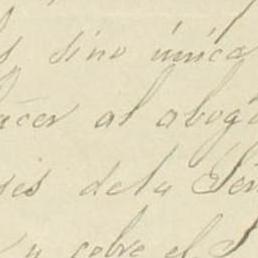 sino única
acer al abog
ses dela Señ
y sobre el S